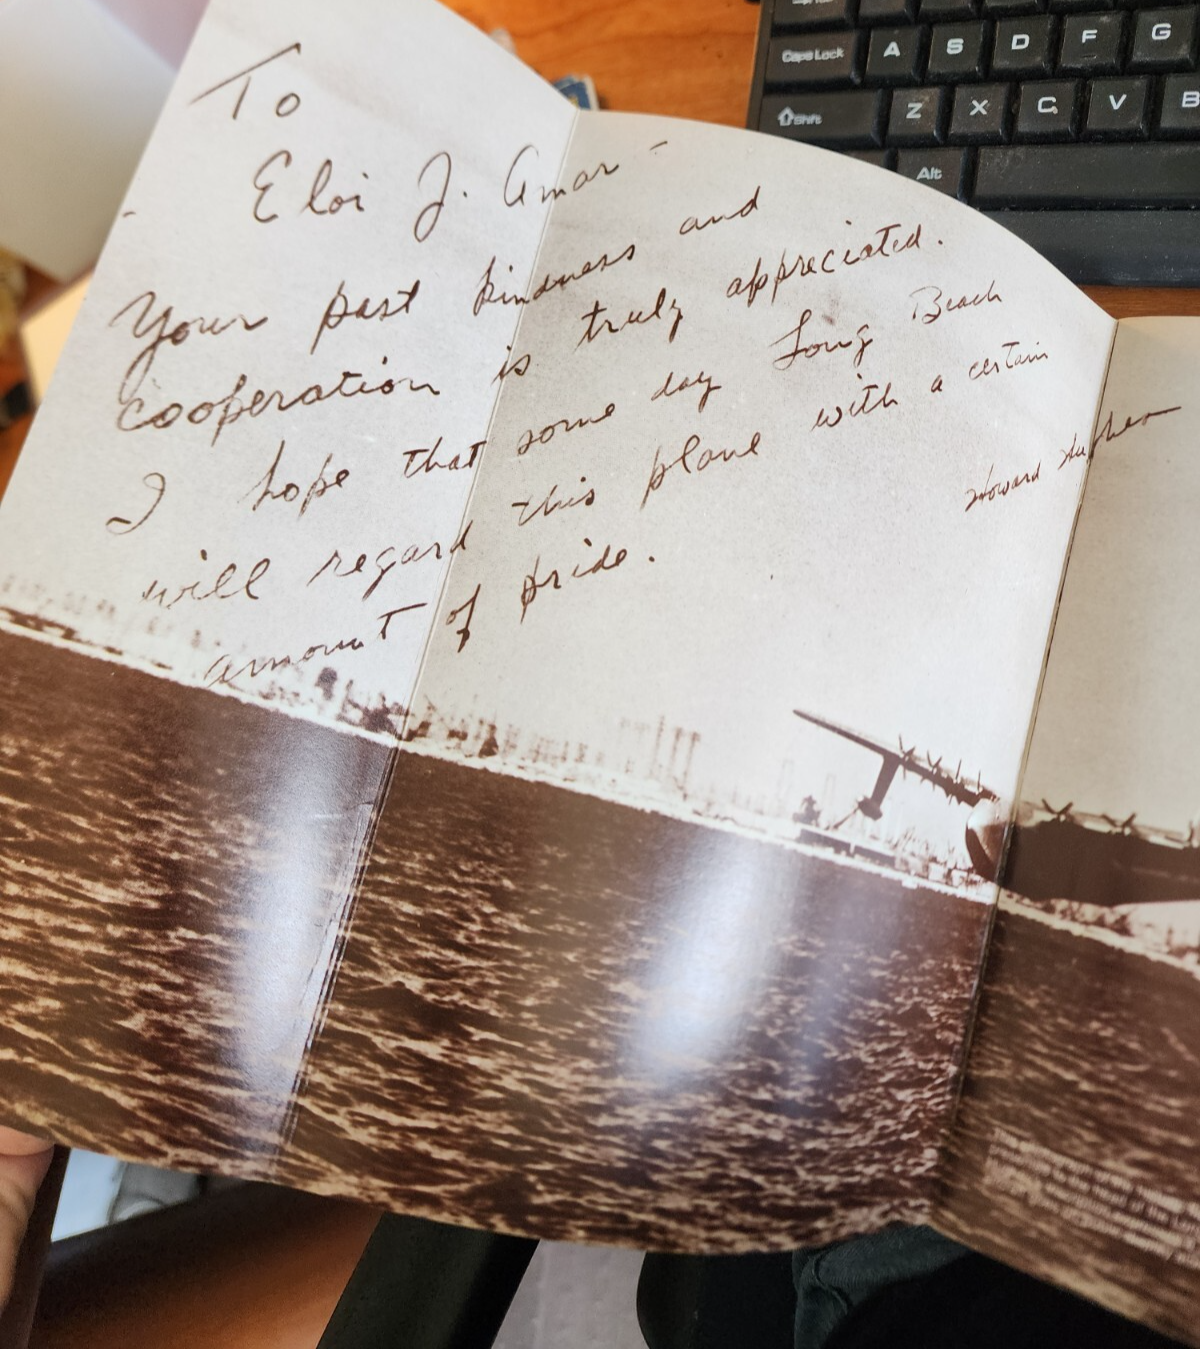 To
Eloi J. Amar -
Your past kindness and
cooperation is truly appreciated.
I hope that some day Long Beach
will regard this plane with a certain
amount of pride.
Howard Hughes
Caps Lock A S D F G
Shift Z X C V B
Alt